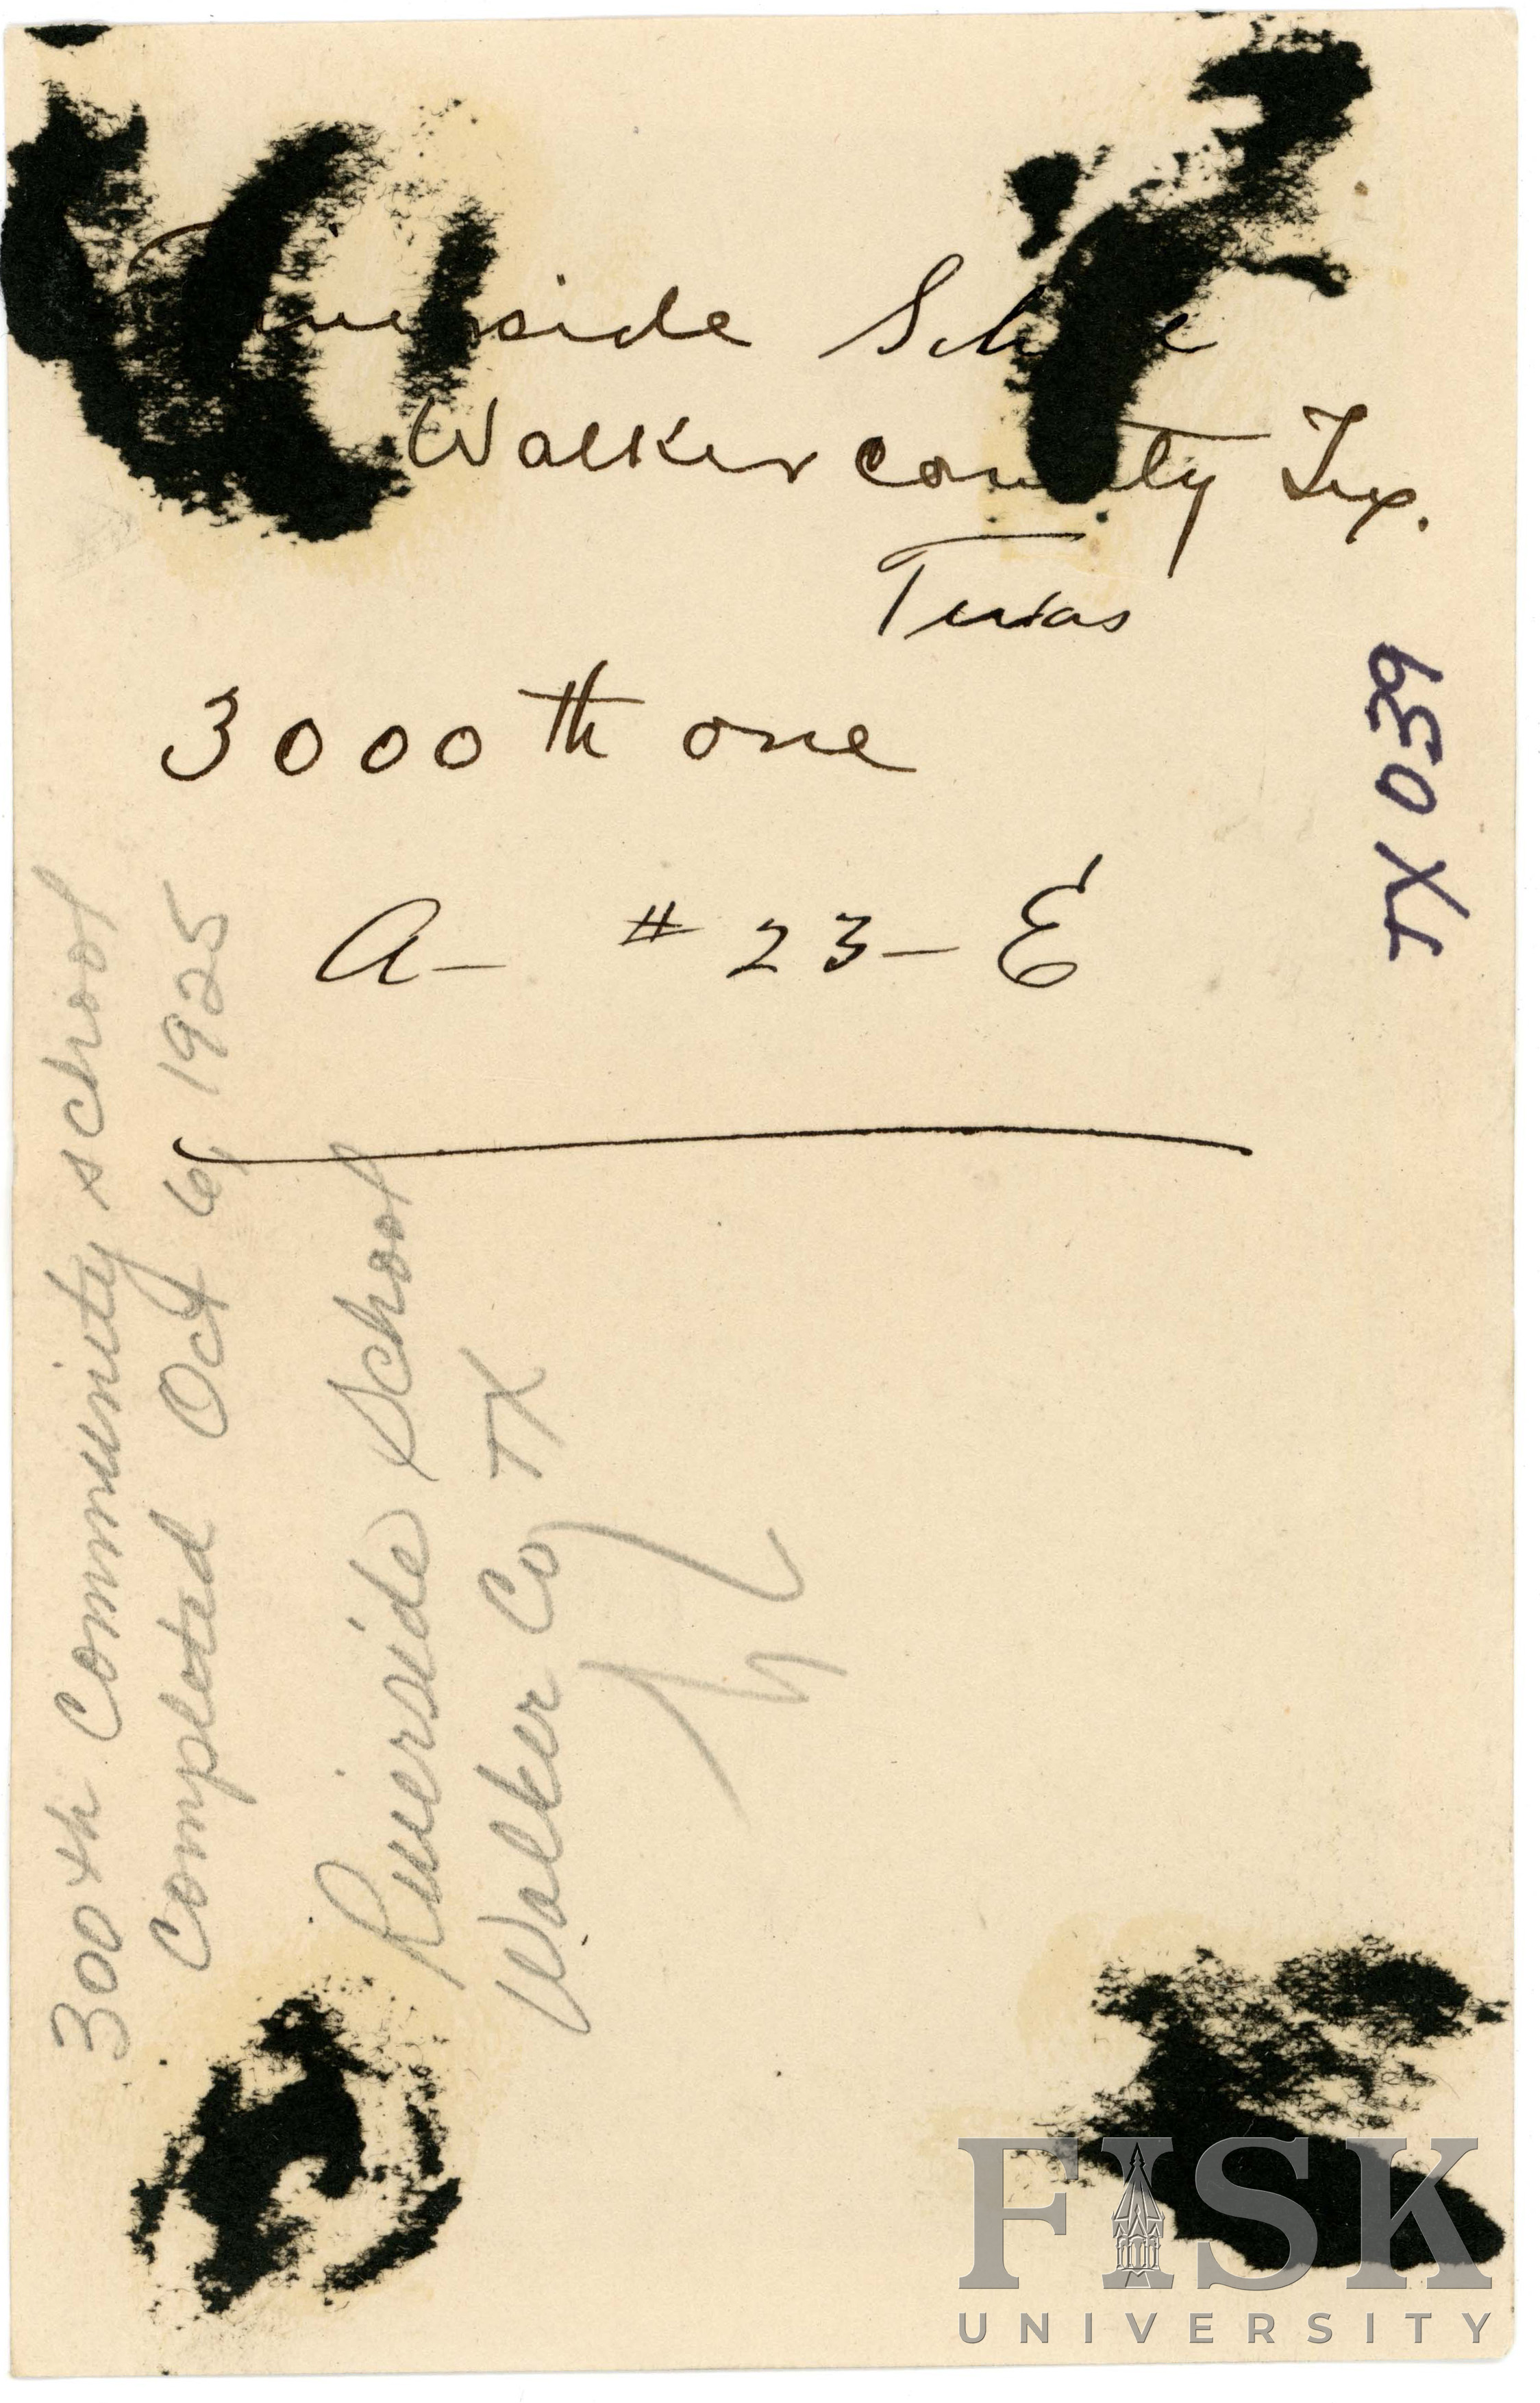 Riverside School
Walker County Tex.
Texas
3000th one
A- # 23-E
TX 039
300th Community school
Completed Oct 6, 1925
Riverside School
Walker Co TX
FISK
UNIVERSITY